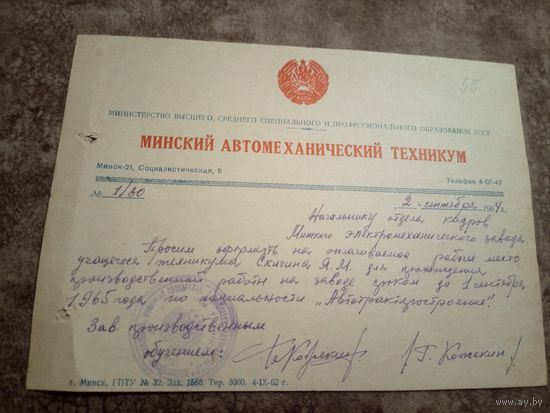 55
МИНИСТЕРСТВО ВЫСШЕГО, СРЕДНЕГО СПЕЦИАЛЬНОГО И ПРОФЕССИОНАЛЬНОГО ОБРАЗОВАНИЯ БССР
МИНСКИЙ АВТОМЕХАНИЧЕСКИЙ ТЕХНИКУМ
Минск-21, Социалистическая, 5 Телефон 4-07-47
№ 1/80 2 сентября 1964 г.
Начальнику отдела кадров
Минского электромеханического завода.
Просим оформить на оплачиваемое рабочее место
учащегося техникума Я.М. для прохождения
производственной работы на заводе сроком до 1 сентября
1965 года по специальности „Автотракторостроение"
Зав. производственным
обучением:
г. Минск, ГПТУ № 32. Зак. 1566. Тир. 3000. 4-IX-62 г.
www.ay.by